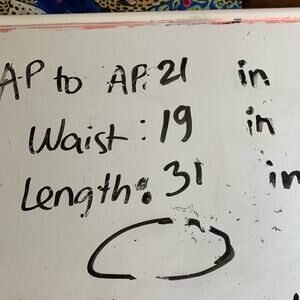 AP to AP: 21 in
Waist: 19 in
Length: 31 in